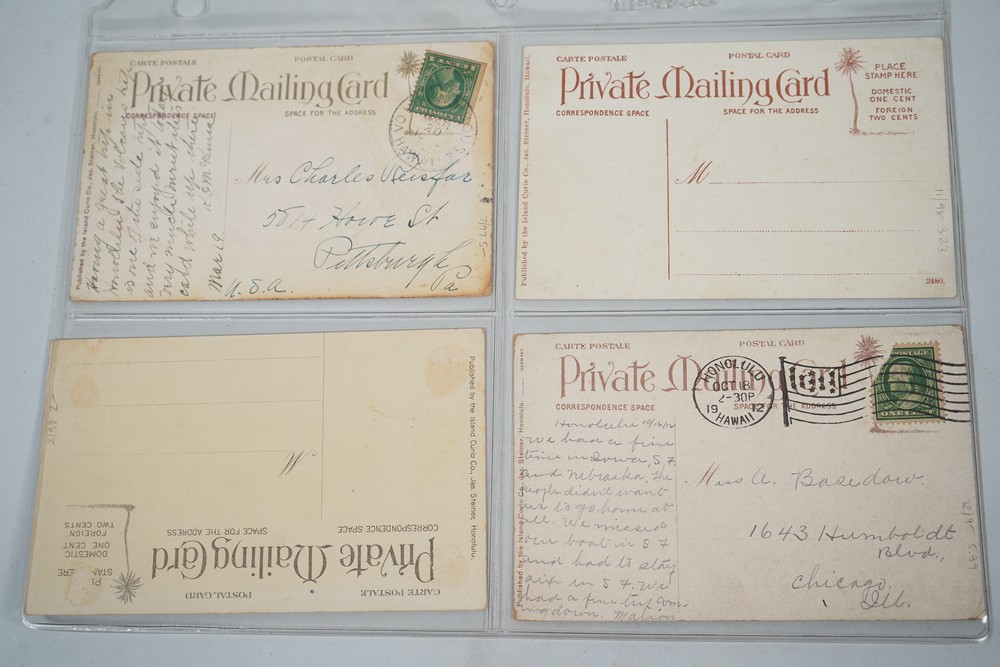 CARTE POSTALE
POSTAL CARD
Private Mailing Card
CORRESPONDENCE SPACE
SPACE FOR THE ADDRESS
Published by the Island Curio Co., Jas. Steiner, Honolulu,
Having a great visit in
Honolulu the Volcano
is one of the side trips
and enjoyed it
very much
card while up there
Mar 19
Mrs Charles
5814 Howe St
Pittsburgh
Pa
U. S. A.
7/975-
CARTE POSTALE
POSTAL CARD
Private Mailing Card
CORRESPONDENCE SPACE
SPACE FOR THE ADDRESS
PLACE
STAMP HERE
DOMESTIC
ONE CENT
FOREIGN
TWO CENTS
Published by the Island Curio Co., Jas. Steiner, Honolulu, Hawaii.
M
11/95 323
2480.
CARTE POSTALE
POSTAL CARD
Private Mailing Card
CORRESPONDENCE SPACE
SPACE FOR THE ADDRESS
DOMESTIC
ONE CENT
FOREIGN
TWO CENTS
Published by the Island Curio Co., Jas. Steiner, Honolulu.
M
CARTE POSTALE
POSTAL CARD
Private Mailing Card
CORRESPONDENCE SPACE
SPACE FOR THE ADDRESS
HONOLULU
OCT 18
2-30P
1912
HAWAII
POSTAGE
ONE CENT
Published by the Island Curio Co., Jas. Steiner, Honolulu,
Honolulu 10/16/12
We had a fine
time in Iowa, S. F.
and Nebraska. The
people didn't want
us to go home at
all. We missed
our boat in S. F.
and had to stay
six in S. F. We
had a fine trip com-
ing down. Marion
Miss A. Basedow
1643 Humboldt
Blvd.,
Chicago,
Ill.